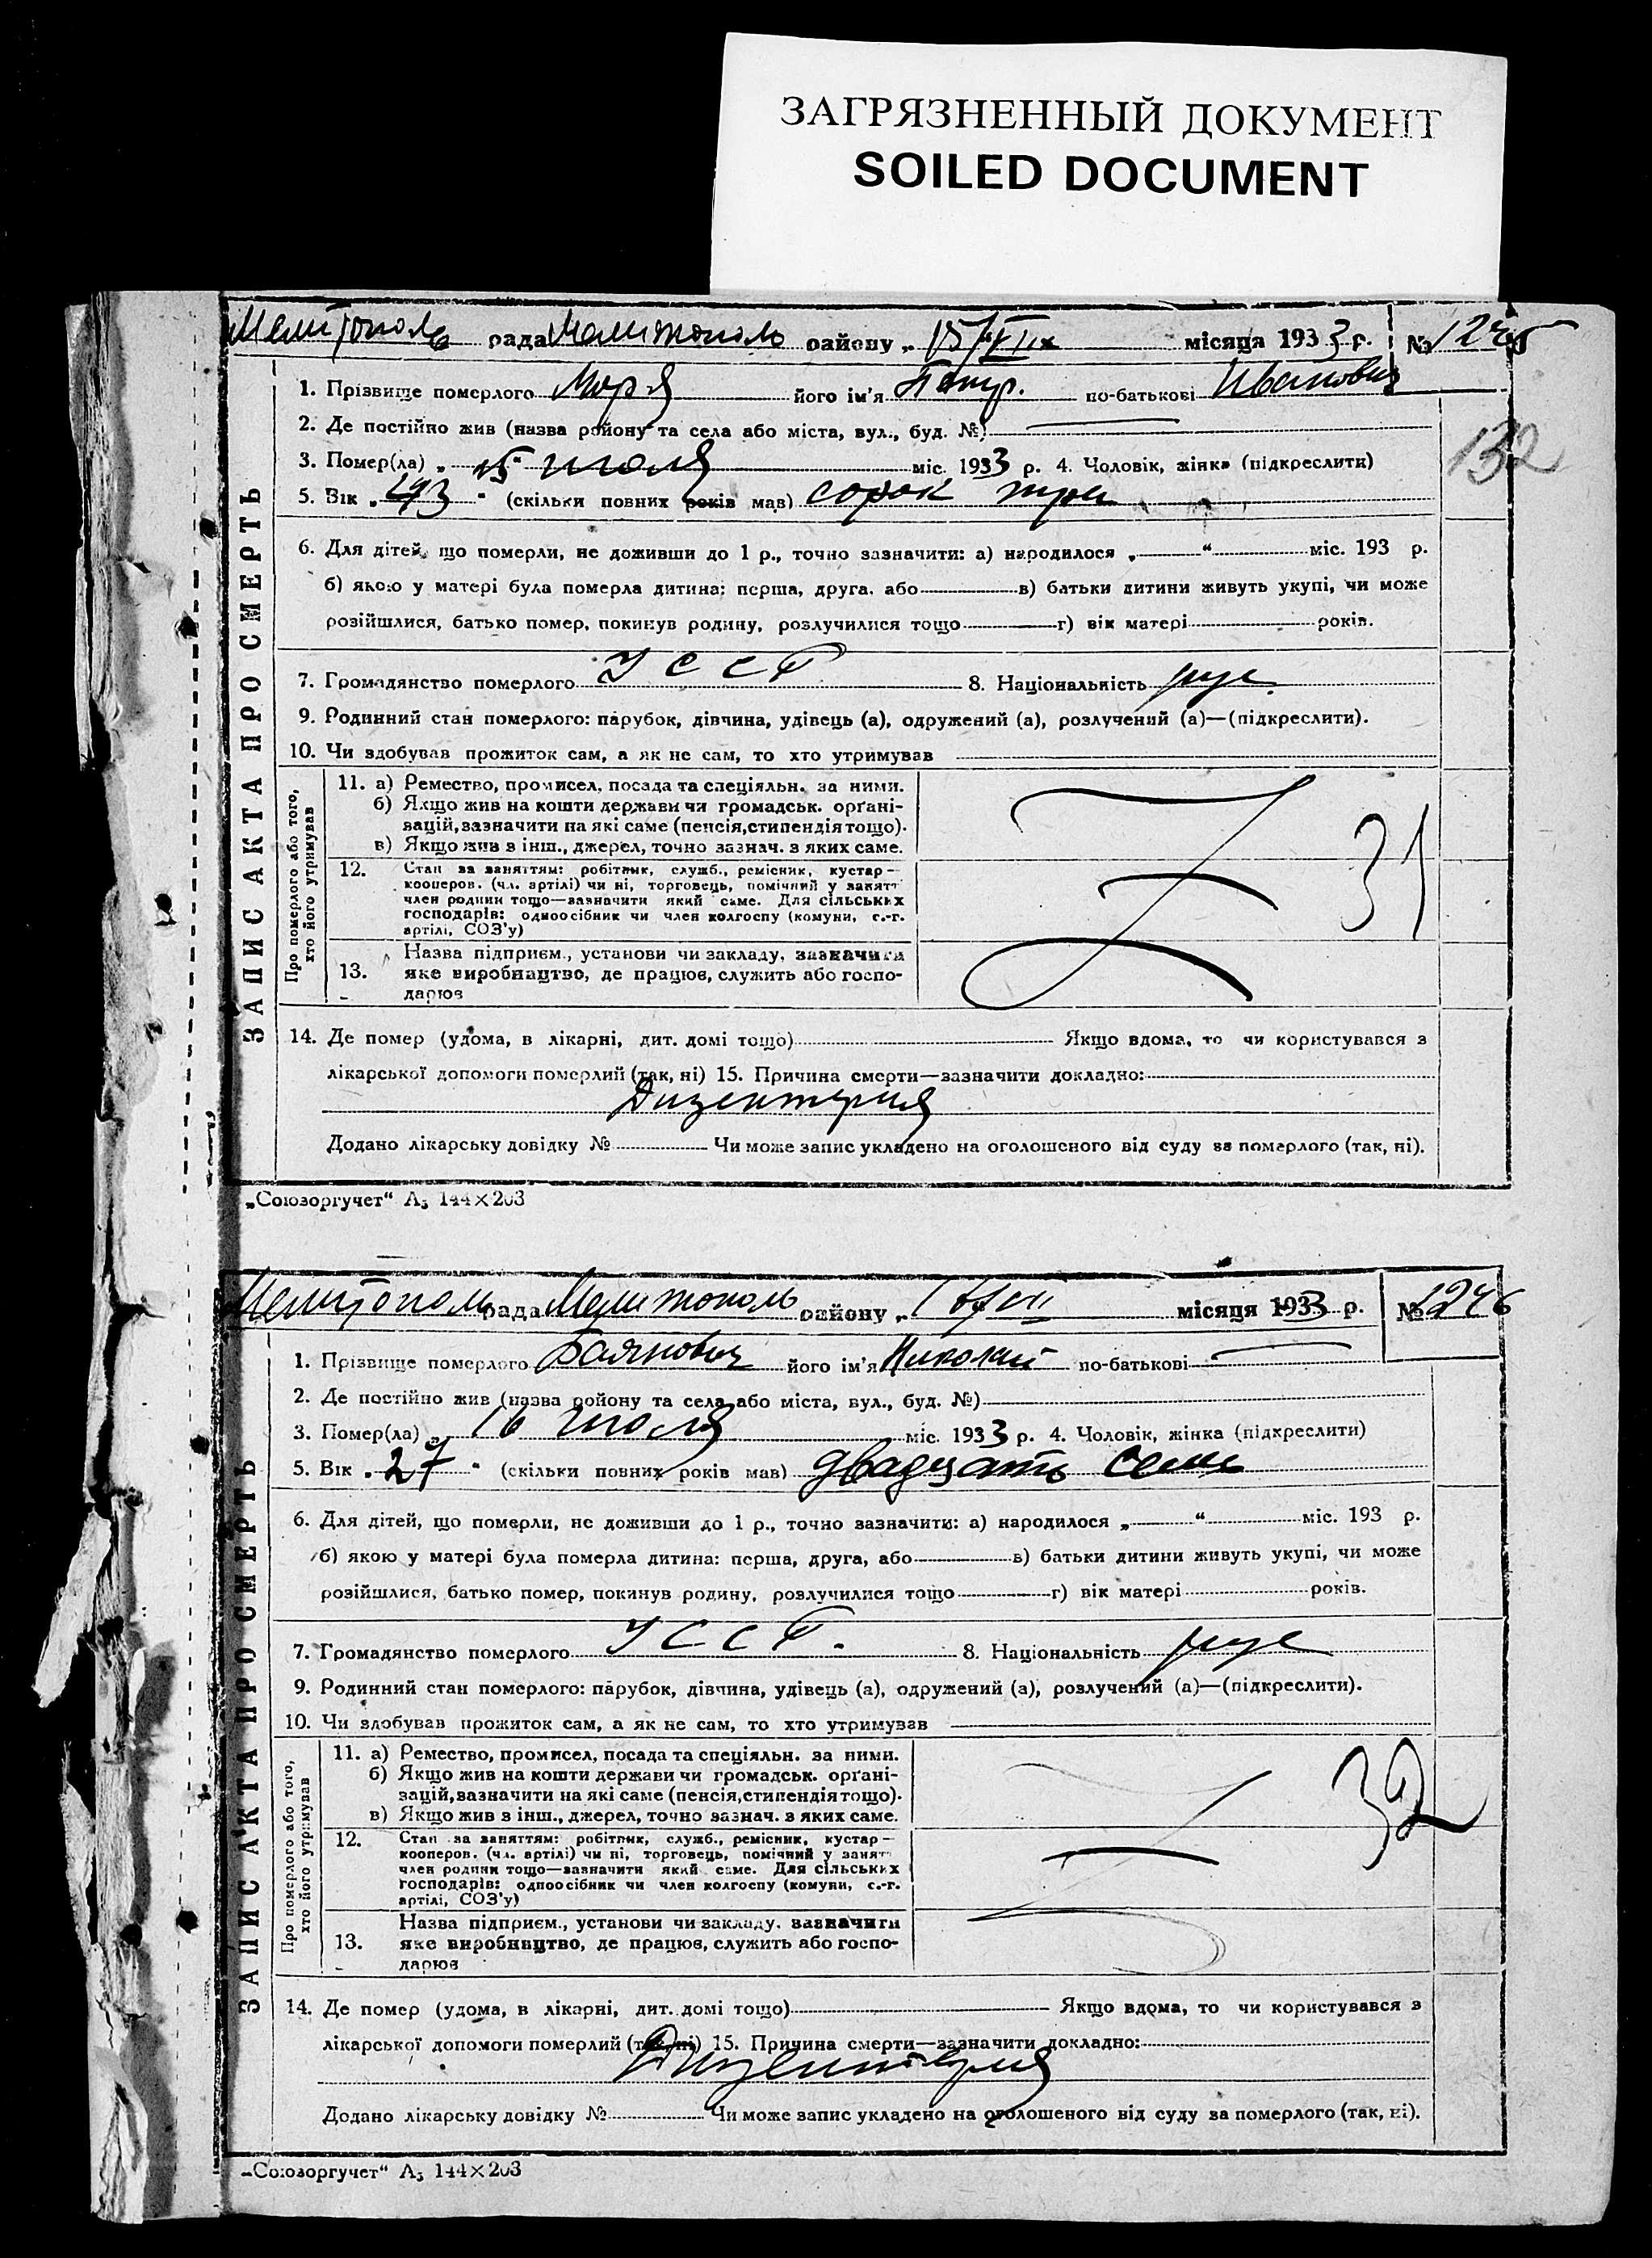 ЗАГРЯЗНЕННЫЙ ДОКУМЕНТ
SOILED DOCUMENT
Мелитополь рада Мелитополь району „ 15/VII місяця 1933 р. № 1245
132
ЗАПИС АКТА ПРО СМЕРТЬ
1. Прізвище померлого його ім'я Петр. по-батькові Иванович
2. Де постійно жив (назва району та села або міста, вул., буд. №)
3. Помер(ла) „ 15 “ июля міс. 1933 р. 4. Чоловік, жінка (підкреслити)
5. Вік „ 43 “ (скільки повних років мав) сорок три
6. Для дітей, що померли, не доживши до 1 р., точно зазначити: а) народилося „ “ міс. 193 р.
б) якою у матері була померла дитина: перша, друга, або в) батьки дитини живуть укупі, чи може
розійшлися, батько помер, покинув родину, розлучилися тощо г) вік матері років.
7. Громадянство померлого УССР 8. Національність рус.
9. Родинний стан померлого: парубок, дівчина, удівець (а), одружений (а), розлучений (а)—(підкреслити).
10. Чи здобував прожиток сам, а як не сам, то хто утримував
Про померлого або того,
хто його утримував
11. а) Ремество, промисел, посада та спеціяльн. за ними.
б) Якщо жив на кошти держави чи громадськ. орґані-
зацій, зазначити на які саме (пенсія, стипендія тощо).
в) Якщо жив з інш., джерел, точно зазнач. з яких саме.
31
12. Стан за заняттям: робітник, служб., ремісник, кустар—
кооперов. (чл. артілі) чи ні, торговець, помічний у занятт
член родини тощо—зазначити який саме. Для сільських
господарів: одноосібник чи член колгоспу (комуни, с.-г.
артілі, СОЗ'у)
Назва підприєм., установи чи закладу, зазначити
13. яке виробництво, де працює, служить або госпо-
дарює
14. Де помер (удома, в лікарні, дит. домі тощо) Якщо вдома, то чи користувався з
лікарської допомоги померлий (так, ні) 15. Причина смерти—зазначити докладно:
Дизентерия
Додано лікарську довідку № Чи може запис укладено на оголошеного від суду за померлого (так, ні).
„Союзоргучет“ А₅ 144×203
Мелитополь рада Мелитополь району „ місяця 1933 р. № 1246
ЗАПИС АКТА ПРО СМЕРТЬ
1. Прізвище померлого Баянович його ім'я Николай по-батькові
2. Де постійно жив (назва району та села або міста, вул., буд. №)
3. Помер(ла) „ 16 июля міс. 1933 р. 4. Чоловік, жінка (підкреслити)
5. Вік „ 27 “ (скільки повних років мав) двадцать семь
6. Для дітей, що померли, не доживши до 1 р., точно зазначити: а) народилося „ “ міс. 193 р.
б) якою у матері була померла дитина: перша, друга, або в) батьки дитини живуть укупі, чи може
розійшлися, батько помер, покинув родину, розлучилися тощо г) вік матері років.
7. Громадянство померлого УССР. 8. Національність рус
9. Родинний стан померлого: парубок, дівчина, удівець (а), одружений (а), розлучений (а)—(підкреслити).
10. Чи здобував прожиток сам, а як не сам, то хто утримував
Про померлого або того,
хто його утримував
11. а) Ремество, промисел, посада та спеціяльн. за ними.
б) Якщо жив на кошти держави чи громадськ. орґані-
зацій, зазначити на які саме (пенсія, стипендія тощо).
в) Якщо жив з інш., джерел, точно зазнач. з яких саме.
32
12. Стан за заняттям: робітник, служб., ремісник, кустар—
кооперов. (чл. артілі) чи ні, торговець, помічний у занятт
член родини тощо—зазначити який саме. Для сільських
господарів: одноосібник чи член колгоспу (комуни, с.-г.
артілі, СОЗ'у)
Назва підприєм., установи чи закладу, зазначити
13. яке виробництво, де працює, служить або госпо-
дарює
14. Де помер (удома, в лікарні, дит. домі тощо) Якщо вдома, то чи користувався з
лікарської допомоги померлий (так, ні) 15. Причина смерти—зазначити докладно:
Дизентерия
Додано лікарську довідку № Чи може запис укладено на оголошеного від суду за померлого (так, ні).
„Союзоргучет“ А₅ 144×203